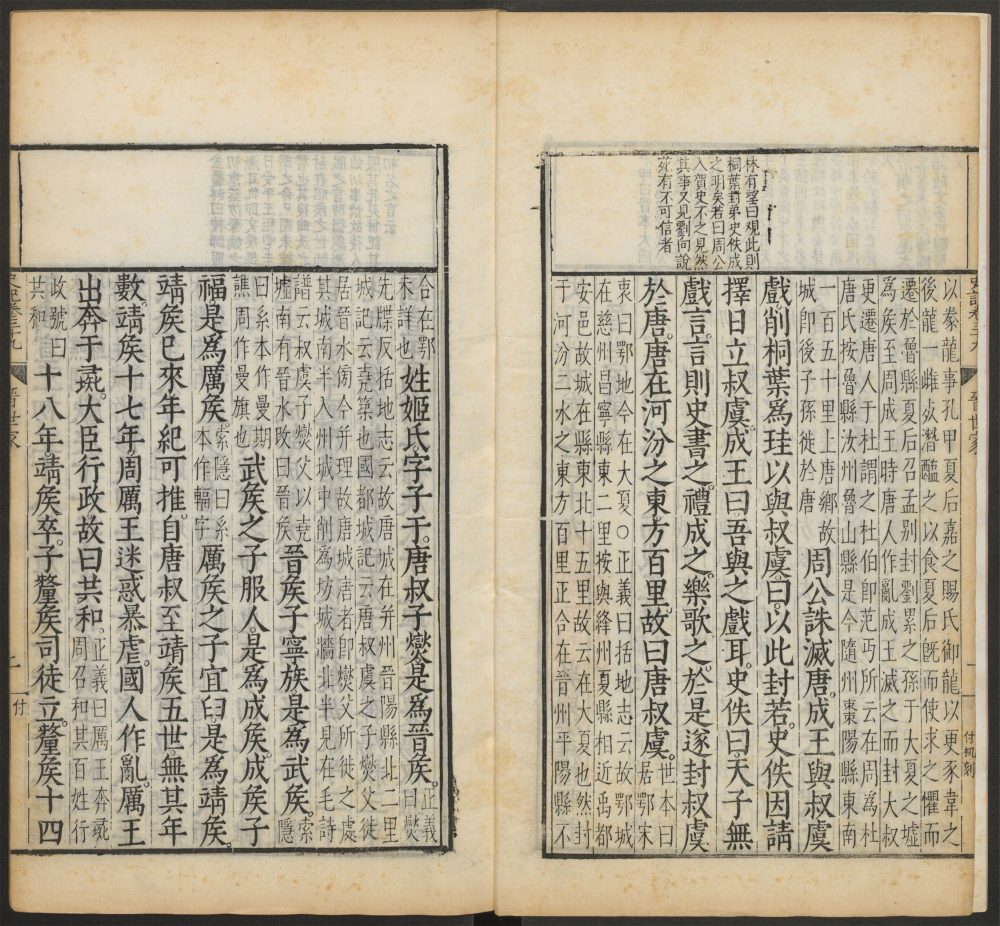 林有望曰觀此則
桐葉封弟史佚成
之明矣若曰周公
入賀史不之見然
其事又見劉向說
苑有不可信者
以豢龍事孔甲夏后嘉之賜氏御龍以更豕韋之
後龍一雌死潛醢之以食夏后旣而使求之懼而
遷於魯縣夏后召孟别封劉累之孫于大夏之墟
爲矦至周成王時唐人作亂成王滅之而封大叔
更遷唐人于杜謂之杜伯卽范丐所云在周爲杜
唐氏按魯縣汝州魯山縣是今隨州棗陽縣東南
一百五十里上唐鄉故
城卽後子孫徙於唐
周公誅滅唐成王與叔虞
戲削桐葉爲珪以與叔虞曰以此封若史佚因請
擇日立叔虞成王曰吾與之戲耳史佚曰天子無
戲言言則史書之禮成之樂歌之於是遂封叔虞
於唐唐在河汾之東方百里故曰唐叔虞
世本曰
居鄂宋
衷曰鄂地今在大夏○正義曰括地志云故鄂城
在慈州昌寧縣東二里按與絳州夏縣相近禹都
安邑故城在縣東北十五里故云在大夏也然封
于河汾二水之東方百里正合在晉州平陽縣不
史記卷三十九
晉世家
付机刻
合在鄂
未詳也
姓姬氏字子于唐叔子燮是爲晉矦
正義
曰燮
先牒反括地志云故唐城在并州晉陽縣北二里
城記云堯築也國都城記云唐叔虞之子燮父徙
居晉水傍今并理故唐城唐者卽燮父所徙之處
其城南半入州城中削爲坊城牆北半見在毛詩
譜云叔虞子燮父以堯
墟南有晉水改曰晉矦
晉矦子寧族是爲武矦
索
隱
曰系本作曼期
譙周作曼旗也
武矦之子服人是爲成矦成矦子
福是爲厲矦
索隱曰系
本作輻字
厲矦之子宜臼是爲靖矦
靖矦已來年紀可推自唐叔至靖矦五世無其年
數靖矦十七年周厲王迷惑暴虐國人作亂厲王
出奔于彘大臣行政故曰共和
正義曰厲王奔彘
周召和其百姓行
政號曰
共和
十八年靖矦卒子釐矦司徒立釐矦十四
晉世家
付